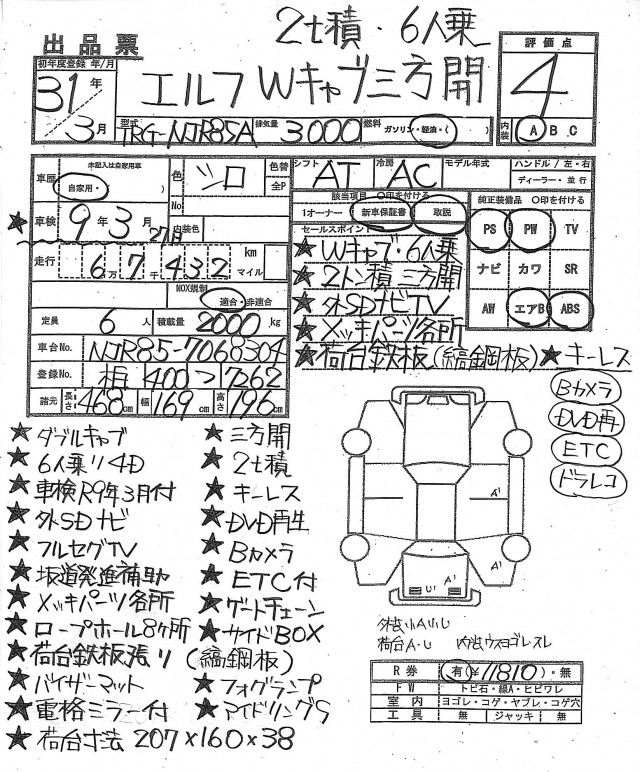 2t積・6人乗
出品票
初年度登録 年/月
31年
3月
エルフWキャブ三方開
評価点
4
内装 A B C
型式 TRG-NJR85A 排気量 3000 燃料 ガソリン・軽油・( )
車歴 未記入は自家用車 自家用・( )
色 シロ 色替 全P
No.
内装色
シフト AT 冷房 AC モデル年式
ハンドル/左・右
ディーラー・並行
★車検 9年3月27日
該当項目 〇印を付ける
1オーナー 新車保証書 取説
純正装備品 〇印を付ける
PS PW TV
ナビ カワ SR
AW エアB ABS
走行 6万7千432 km マイル
NOX規制 適合・非適合
定員 6人 積載量 2000kg
車台No. NJR85-7068304
登録No. 相 400 つ 7262
諸元 長さ 468cm 幅 169cm 高さ 196cm
セールスポイント
★Wキャブ・6人乗
★2トン積 三方開
★外SDナビTV
★メッキパーツ各所
★荷台鉄板(縞鋼板)★キーレス
Bカメラ
DVD再
ETC
ドラレコ
★ダブルキャブ
★6人乗リ4D
★車検R9年3月付
★外SDナビ
★フルセグTV
★坂道発進補助
★メッキパーツ各所
★ロープホール8ヶ所
★荷台鉄板張り(縞鋼板)
★バイザーマット
★電格ミラー付
★荷台寸法207×160×38
★三方開
★2t積
★キーレス
★DVD再生
★Bカメラ
★ETC付
★ゲートチェーン
★サイドBOX
★フォグランプ
★アイドリングS
A'
A'
U' A' A'
外装小A小U
荷台A・U
R券 有(¥11810)・無
FW トビ石・線A・ヒビワレ
室内 ヨゴレ・コゲ・ヤブレ・コゲ穴
工具 無 ジャッキ 無